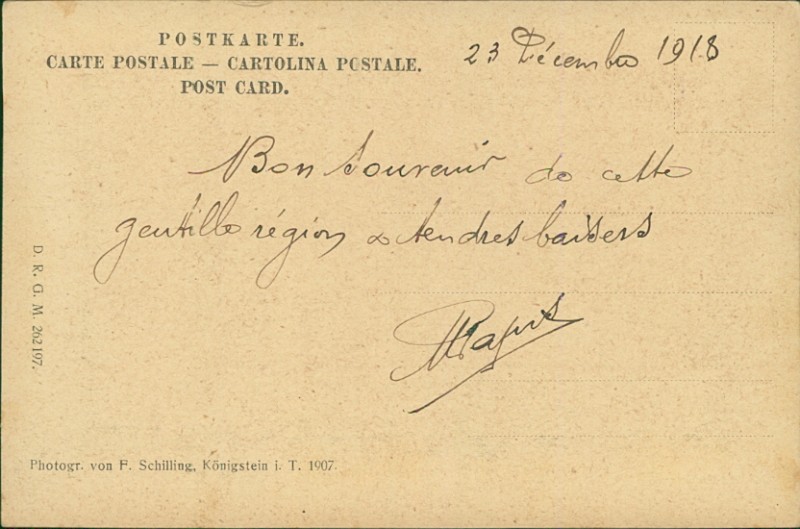 POSTKARTE.
CARTE POSTALE — CARTOLINA POSTALE.
POST CARD.
23 Décembre 1918
Bon souvenir de cette
gentille région & tendres baisers
D. R. G. M. 262197.
Photogr. von F. Schilling, Königstein i. T. 1907.